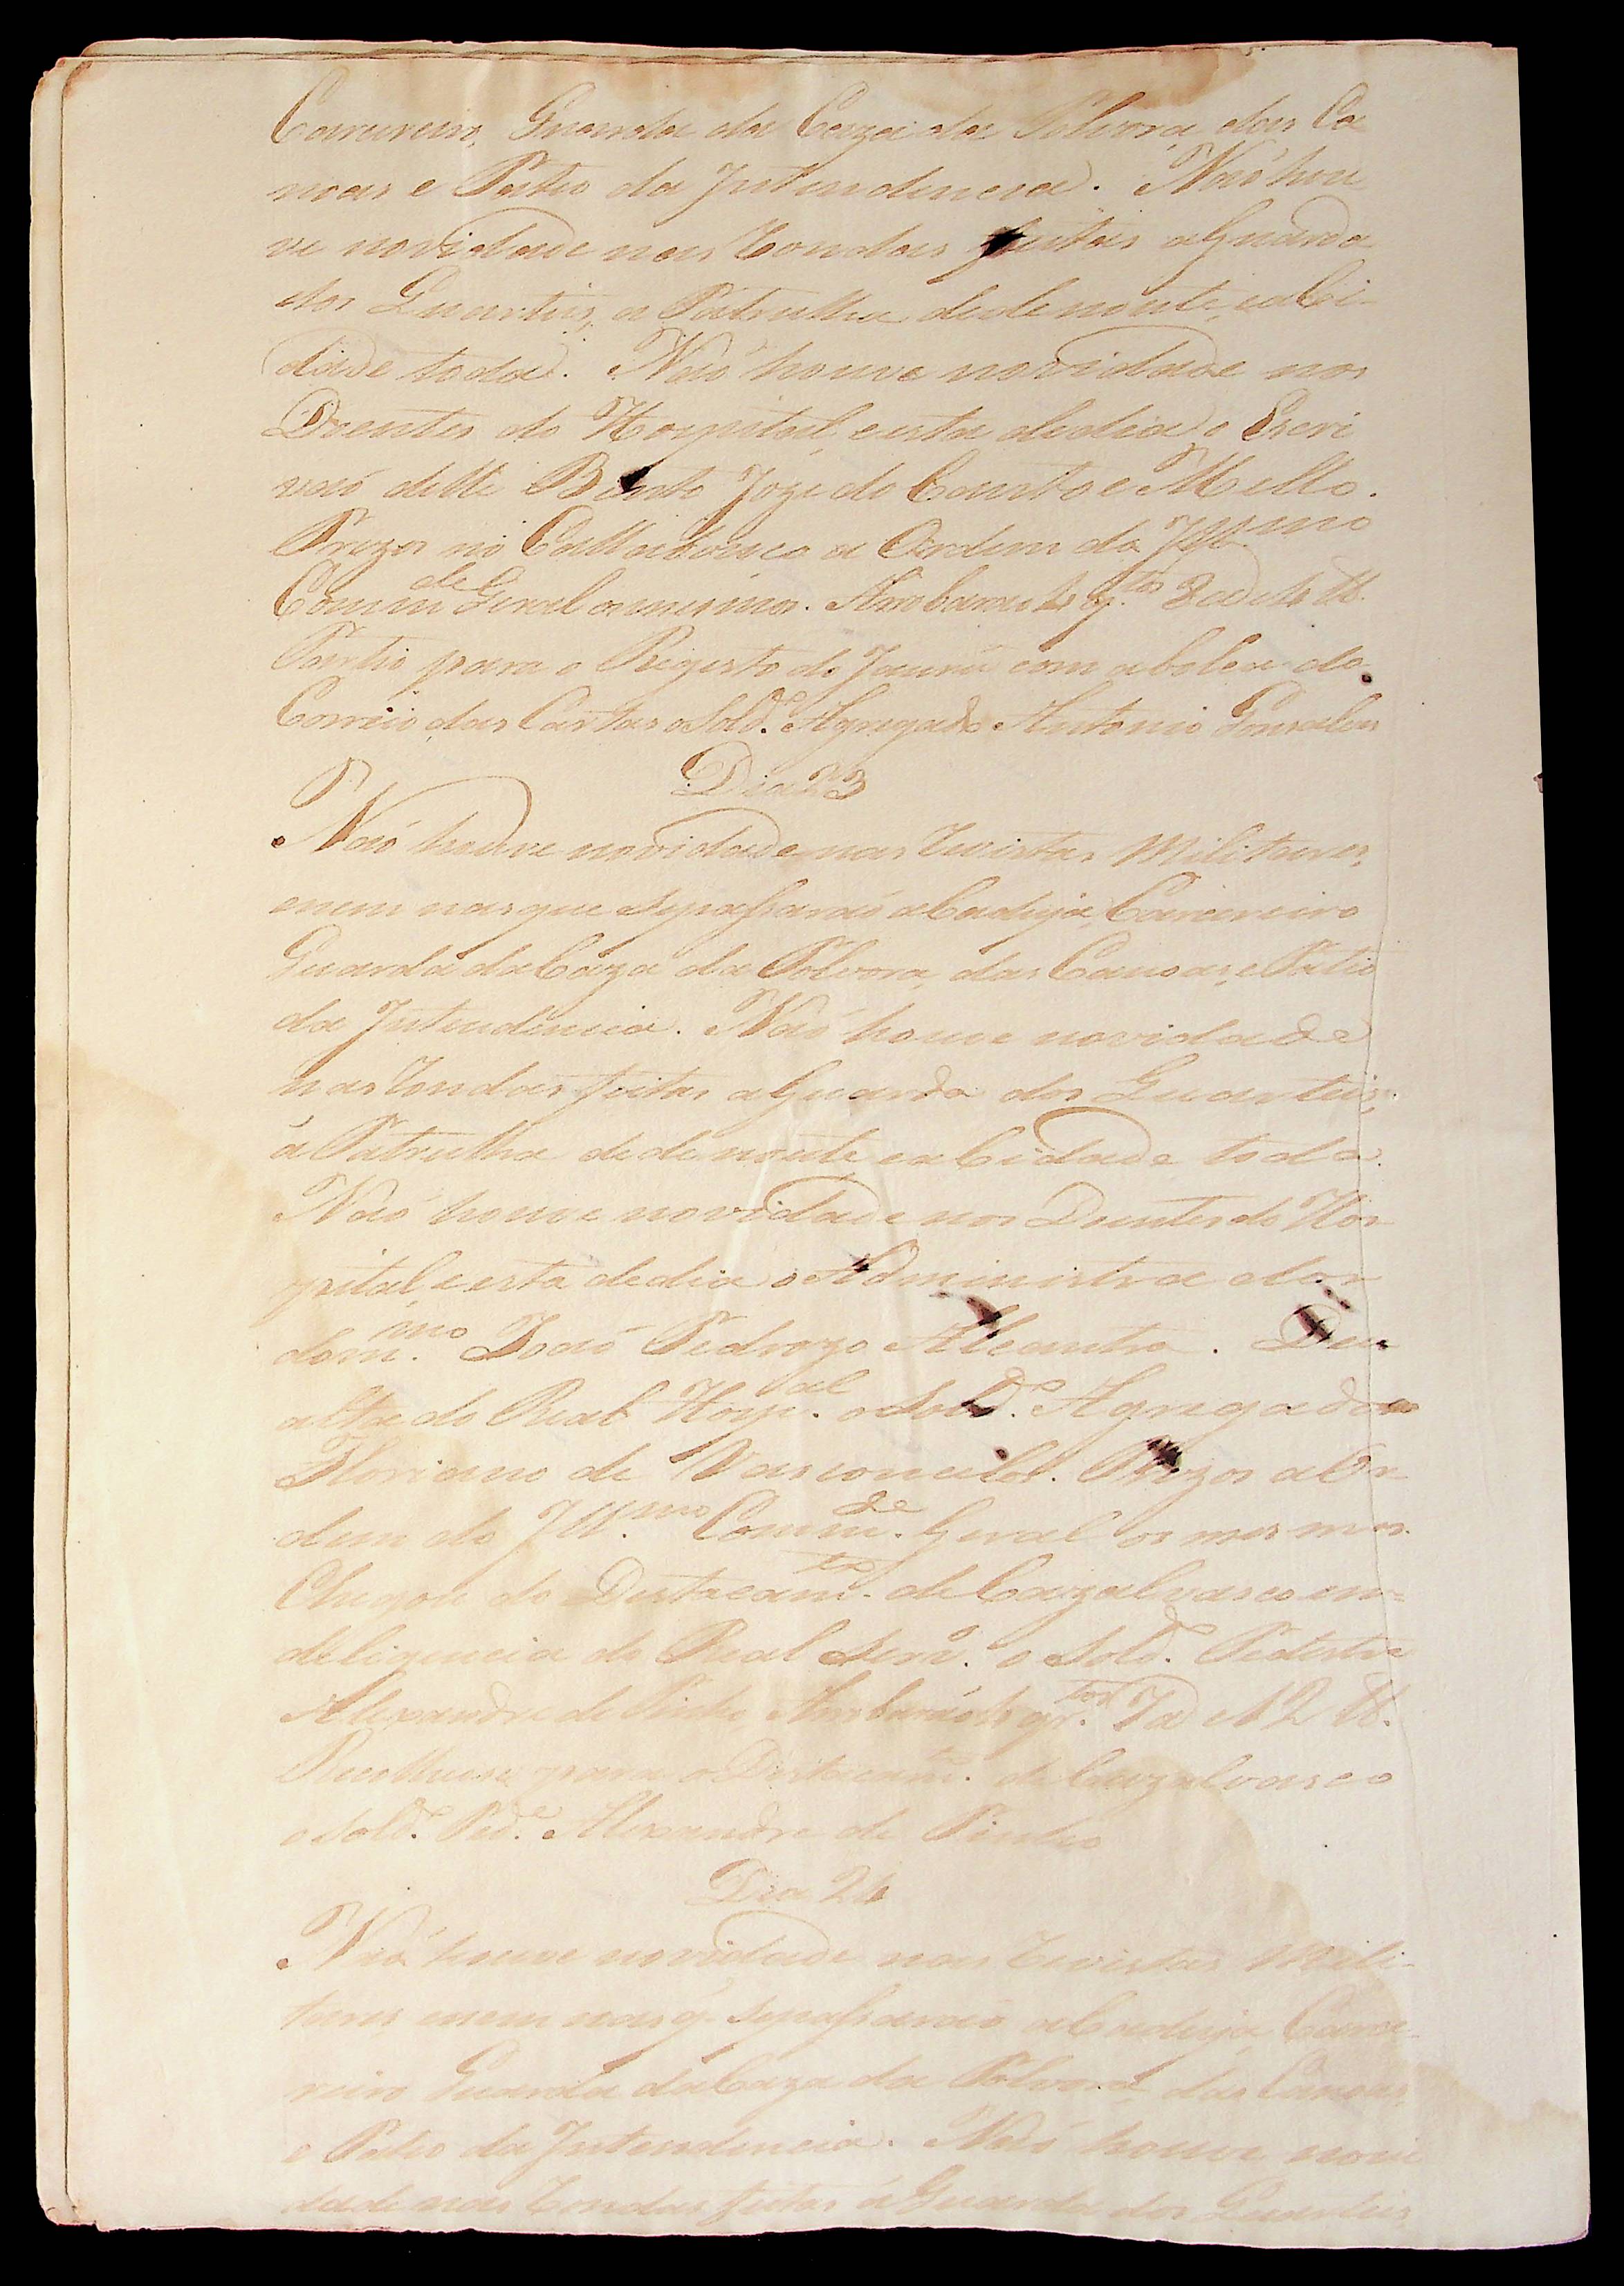 Carcereiro, Guarda da Caza da Polvora, das Ca
noas e Patio da Intendencia. Naõ hou
ve novidade nas Rondas feitas aGuarda
dos Quarteis, a Patrulha dedenoute, eaCi-
dade toda. Naõ houve novidade nos
Doentes do Hospital, eesta dedia o Escri
vaõ delle Bento Joze do Couto e Mello.
Prezos no Callabouco a Ordem do Illmo
Commde Geral os mesmos. Arrobaraõ
Partio para o Registo do Jaurú com abolca do
Correio das Cartas oSoldo. Agregado Antonio Gonsalves
Dia 23
Naõ houve novidade nas Revistas Militares,
enem nasque sepassaraõ aCadeya, Carcereiro
Guarda daCaza da Polvora, das Canoas, ePatio
da Intendencia. Naõ houve novidade
nasRondas feitas aGuarda dos Quarteis,
á Patrulha dedenoute, eaCidade toda.
Naõ houve novidade nos Doentes do Hos
pital, eesta dedia o Administrador
dommo. Joaõ Pedrozo Alcantra. Deu
alta do Real Hospal. oSoldo. Agregado
Floriano de Vasconcelos. Prezos aOr
dem do Illmo. Commde. Geral os mesmos.
Chegou do Destacamto. de Cazalvasco em
deligencia do Real Servo. o Soldo. Pedestre
Alexandre de Pinho
Recolheuse para oDestacamto. de Cazalvasco
oSoldo. Pede. Alexandre de Pinho
Dia 24
Naõ houve novidade nas Revistas Mili-
tares, enem nasq. sepassaraõ aCadeya, Carce-
reiro Guarda daCaza da Polvora, das Canoas,
e Patio da Intendencia. Naõ houve novi
dade nas Rondas feitas á Guarda dos Quarteis,